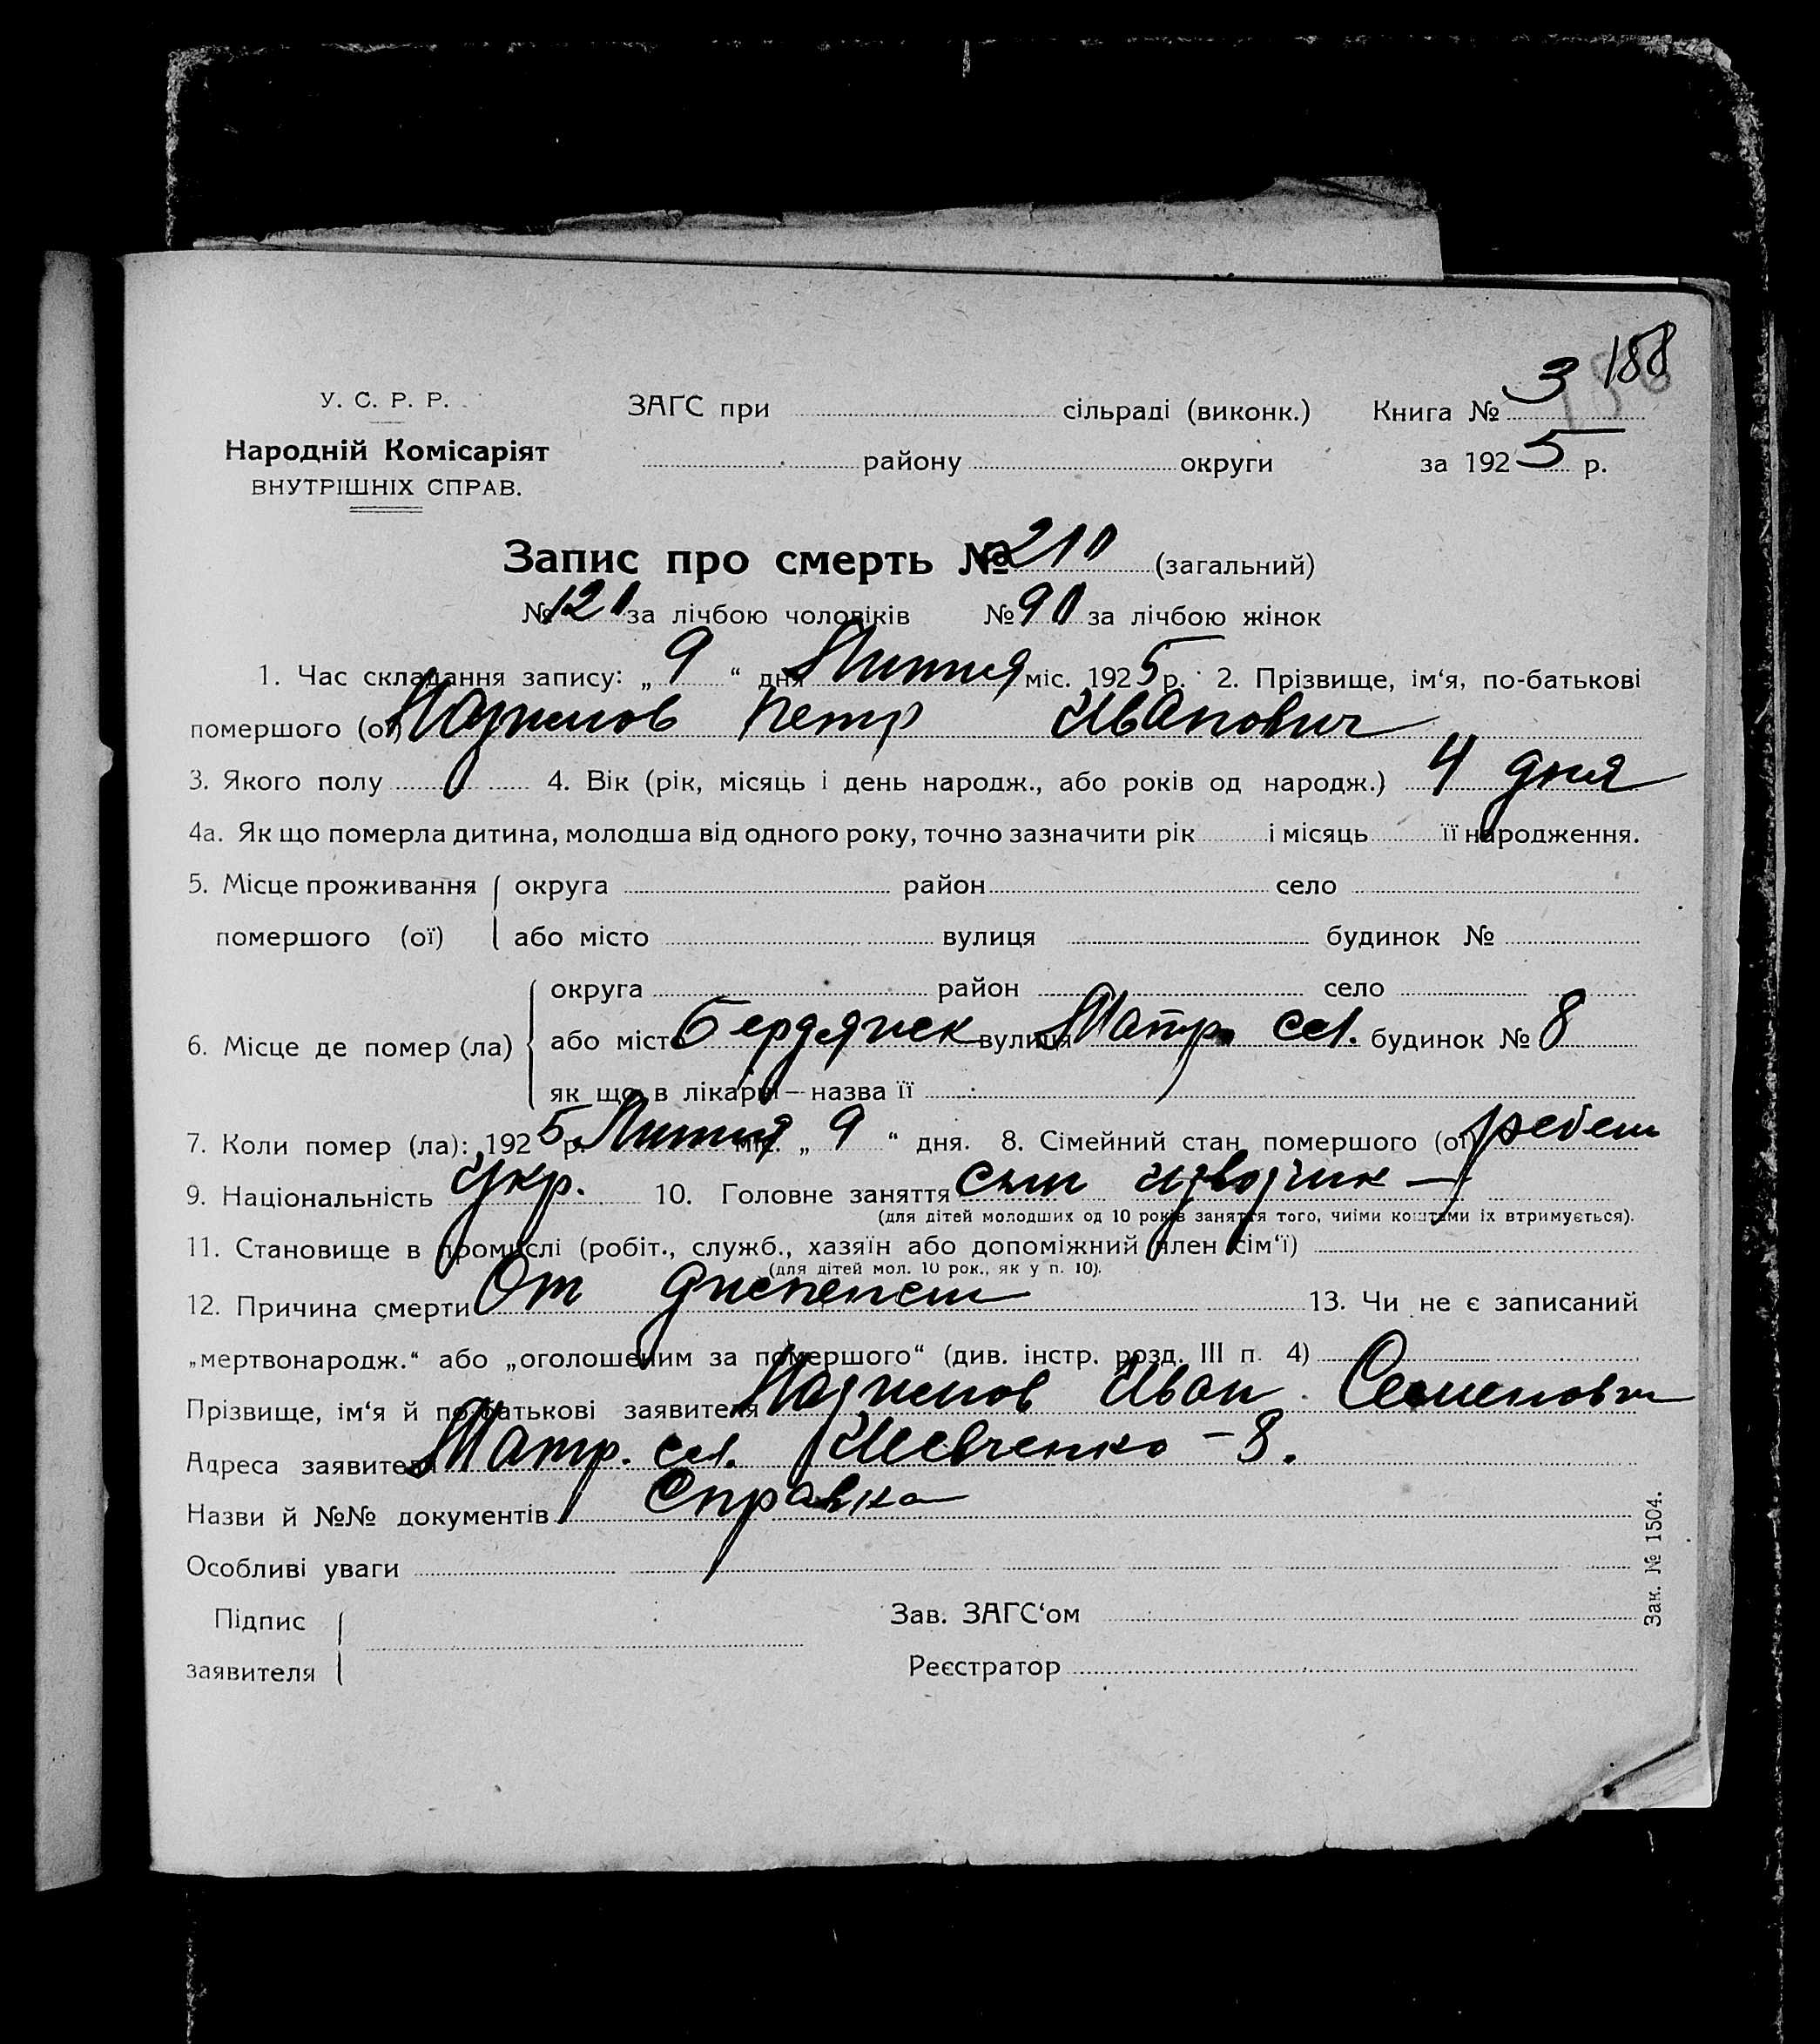 188
У. С. Р. Р. ЗАГС при сільраді (виконк.) Книга № 3
Народній Комісаріят
району округи за 1925 р.
ВНУТРІШНІХ СПРАВ.
Запис про смерть № 210 (загальний)
№ 120 за лічбою чоловіків № 90 за лічбою жінок
1. Час складання запису: „ 9 “ дня міс. 1925 р. 2. Прізвище, ім‘я, по-батькові
помершого (ої) Петр Иванович
3. Якого полу 4. Вік (рік, місяць і день народж., або років од народж.) 4 дня
4а. Як що померла дитина, молодша від одного року, точно зазначити рік і місяць її народження.
5. Місце проживання округа район село
помершого (ої) або місто вулиця будинок №
округа район село
6. Місце де помер (ла) або місто Бердянск вулиця сел. будинок № 8
як що в лікарні — назва її
7. Коли помер (ла): 1925 р. міс. „ 9 “ дня. 8. Сімейний стан помершого (ої) ребен
9. Національність Укр. 10. Головне заняття сын извозчик —
(для дітей молодших од 10 років заняття того, чиїми коштами їх втримується).
11. Становище в промислі (робіт., служб., хазяїн або допоміжний член сім‘ї)
(для дітей мол. 10 рок., як у п. 10).
12. Причина смерти От 13. Чи не є записаний
„мертвонародж.“ або „оголошеним за помершого“ (див. інстр. розд. III п. 4)
Прізвище, ім‘я й по батькові заявителя Иван Семенович
Адреса заявителя сел. Шевченко – 8.
Назви й №№ документів Справка
Особливі уваги
Підпис Зав. ЗАГС‘ом
заявителя Реєстратор
Зак. № 1504.